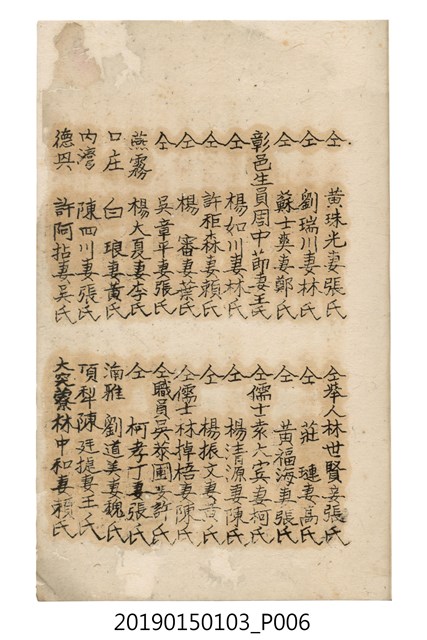 仝 黃珠光妻張氏
仝 劉瑞川妻林氏
仝 蘇士爽妻鄭氏
彰邑生員周中節妻王氏
仝 楊如川妻林氏
仝 許秬森妻賴氏
仝 楊審妻葉氏
仝 吳章平妻張氏
燕霧 楊大夏妻李氏
口庄 白琅妻黃氏
內灣 陳四川妻張氏
德興 許阿拈妻吳氏
仝舉人林世賢妾張氏
仝 莊璉妻高氏
仝 黃福海妻張氏
仝儒士袁六賓妻柯氏
仝 楊清源妻陳氏
仝 楊振文妻黃氏
仝儒士林掉梧妻陳氏
仝職員吳蔡圃妻許氏
仝 柯孝丁妻張氏
湳雅 劉道美妻魏氏
頂犁陳廷搋妻王氏
大突藔林中和妻賴氏
20190150103_P006